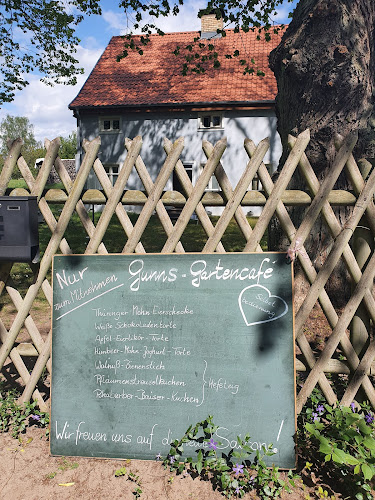 Nur
zum Mitnehmen
Gunns-Gartencafé
Thüringer Mohn Eierschecke
Weiße Schokoladentorte
Apfel-Eierlikör-Torte
Himbeer-Mohn Joghurt-Torte
Walnuß-Bienenstich
Pflaumenstreuselkuchen
Rhabarber-Baiser-Kuchen
Hefeteig
Wir freuen uns auf die neue Saison!